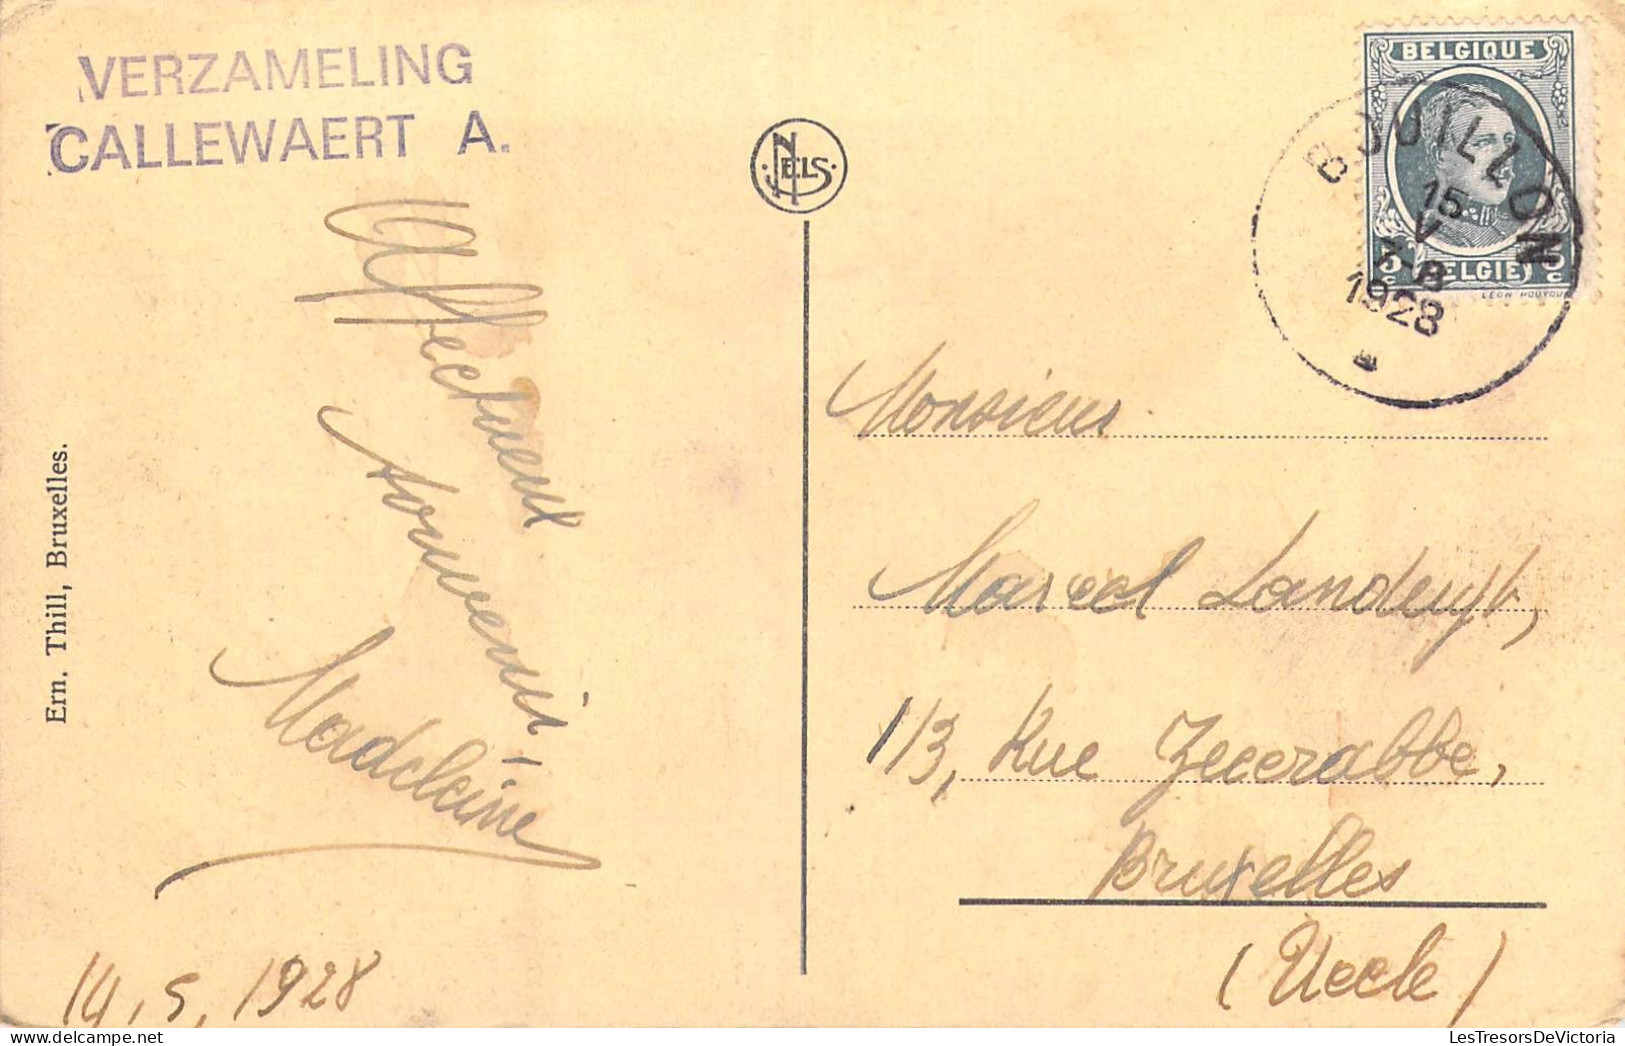 VERZAMELING
CALLEWAERT A.
NELS
Ern. Thill, Bruxelles.
Affectueux
souvenir,
Madeleine
14, 5, 1928
BELGIQUE
5 c BELGIE 5 c
BOUILLON
15
V
7-8
1928
Monsieur
Marcel Landuyt,
113, Rue Zeecrabbe,
Bruxelles
(Uccle)
LesTresorsDeVictoria